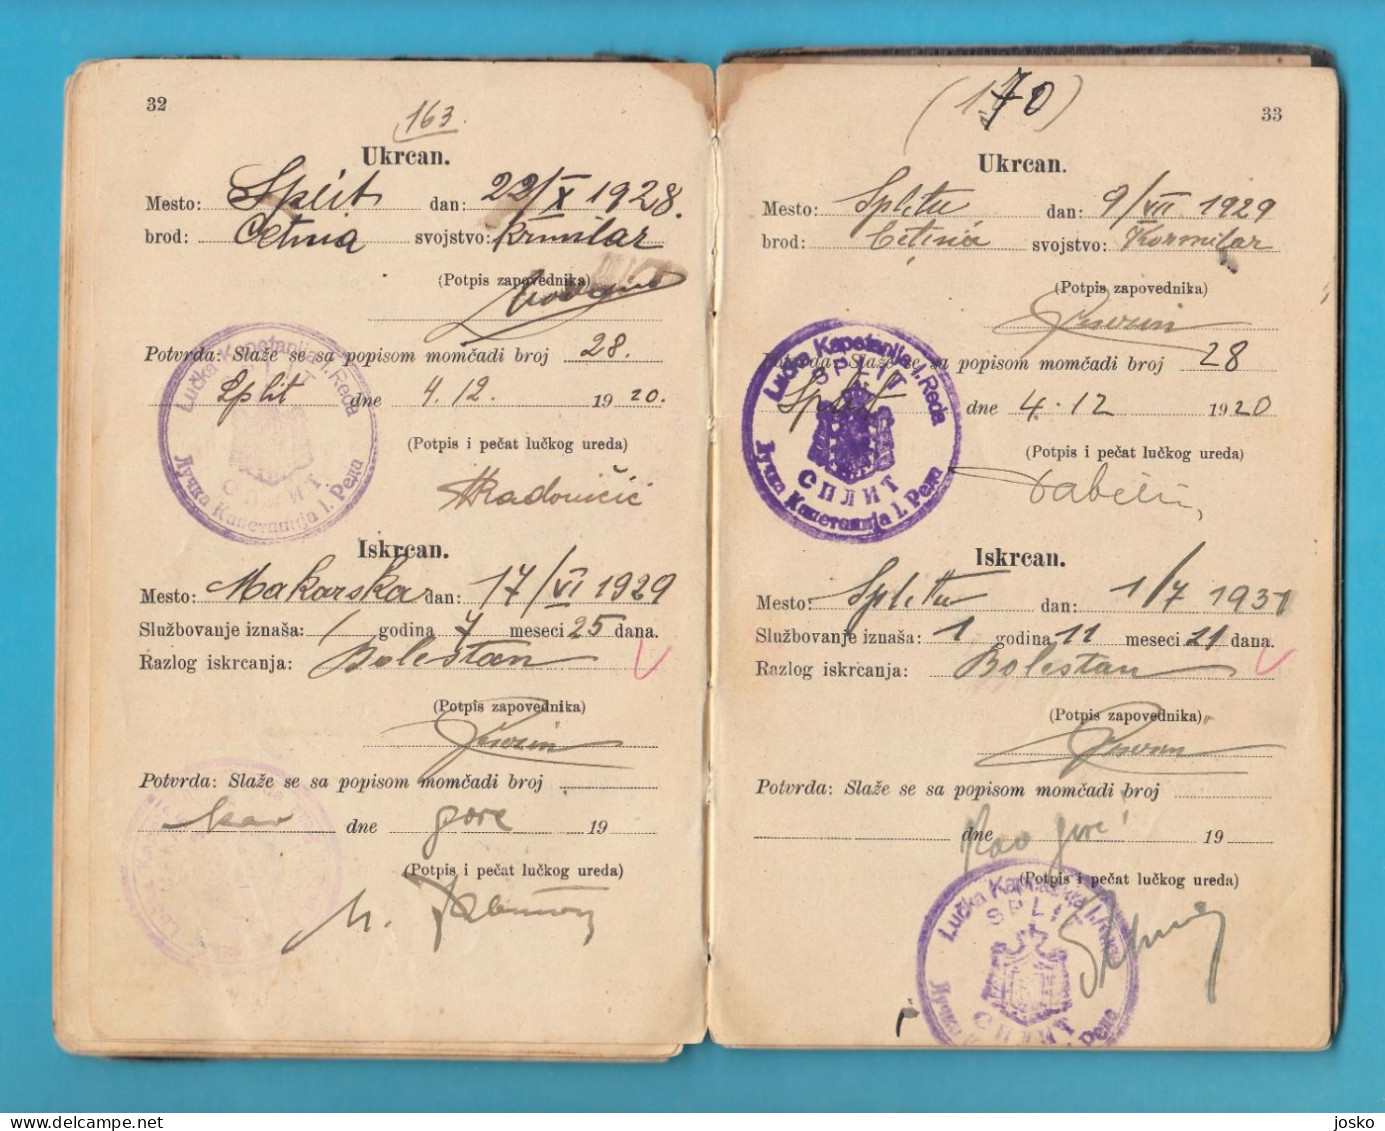 32
163.
Ukrcan.
Mesto: Split dan: 22/X 1928.
brod: Cetina svojstvo: Krmilar
(Potpis zapovednika)
Potvrda: Slaže se sa popisom momčadi broj 28.
Split dne 4.12. 1920.
(Potpis i pečat lučkog ureda)
Radovičić
Lučka Kapetanija I. Reda
SPLIT
СПЛИТ
Лучка Капетанија I. Реда
Iskrcan.
Mesto: Makarska dan: 17/VI 1929
Službovanje iznaša: 1 godina 7 meseci 25 dana.
Razlog iskrcanja: Bolestan
(Potpis zapovednika)
Potvrda: Slaže se sa popisom momčadi broj
kao dne gore 19
(Potpis i pečat lučkog ureda)
33
(170)
Ukrcan.
Mesto: Splitu dan: 9/VII 1929
brod: Cetina svojstvo: Kormilar
(Potpis zapovednika)
Potvrda: Slaže se sa popisom momčadi broj 28
Split dne 4.12 1920
(Potpis i pečat lučkog ureda)
Lučka Kapetanija I. Reda
SPLIT
СПЛИТ
Лучка Капетанија I. Реда
Iskrcan.
Mesto: Splitu dan: 1/7 1931
Službovanje iznaša: 1 godina 11 meseci 21 dana.
Razlog iskrcanja: Bolestan
(Potpis zapovednika)
Potvrda: Slaže se sa popisom momčadi broj
kao gore dne 19
(Potpis i pečat lučkog ureda)
Lučka Kapetanija I. Reda
SPLIT
СПЛИТ
delcampe.net
josko